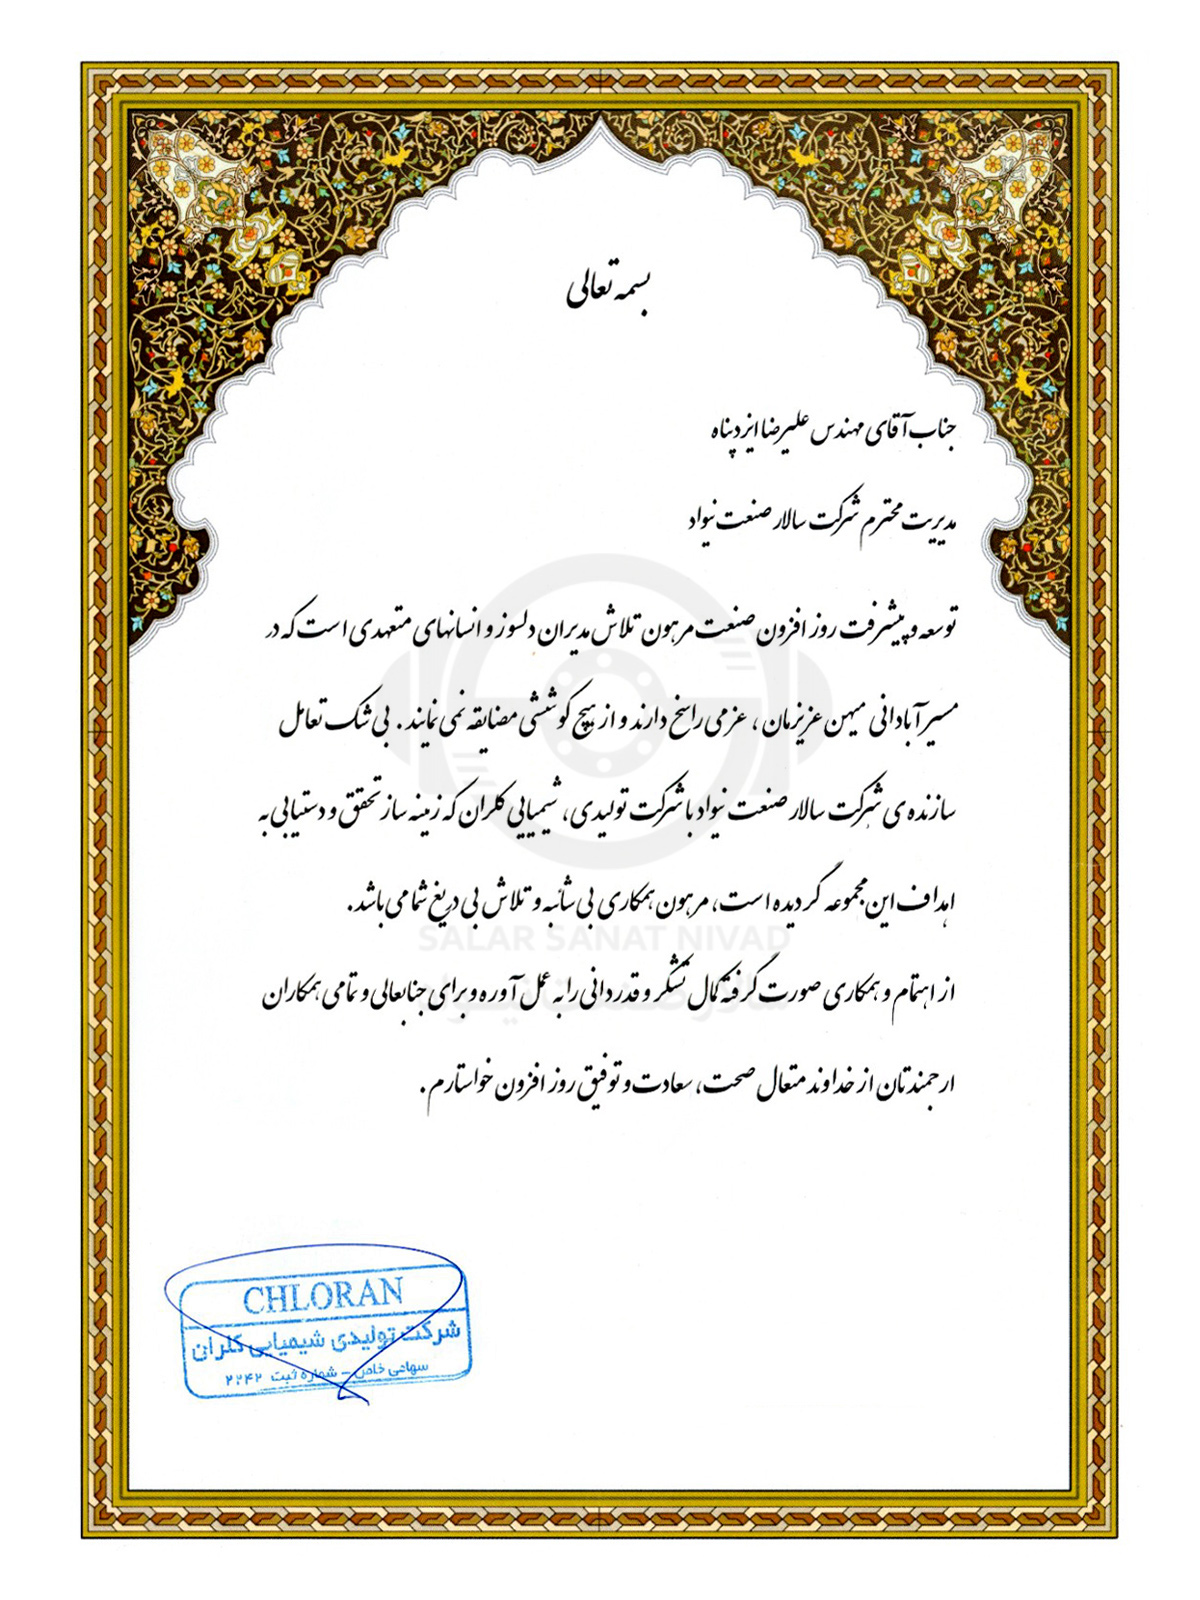 بسمه تعالی
جناب آقای مهندس علیرضا ایزدپناه
مدیریت محترم شرکت سالار صنعت نیواد
توسعه و پیشرفت روز افزون صنعت مرهون تلاش مدیران دلسوز و انسانهای متعهدی است که در
مسیر آبادانی میهن عزیزمان ، عزمی راسخ دارند و از هیچ کوششی مضایقه نمی نمایند . بی شک تعامل
سازنده ی شرکت سالار صنعت نیواد با شرکت تولیدی، شیمیایی کلران که زمینه ساز تحقق و دستیابی به
اهداف این مجموعه گردیده است، مرهون همکاری بی شائبه و تلاش بی دریغ شما می باشد.
SALAR SANAT NIVAD
از اهتمام و همکاری صورت گرفته کمال تشکر و قدردانی را به عمل آوره و برای جنابعالی و تمامی همکاران
سالار صنعت نیواد
ارجمندتان از خداوند متعال صحت، سعادت و توفیق روز افزون خواستارم .
CHLORAN
شرکت تولیدی شیمیایی کلران
سهامی خاص – شماره ثبت ۲۲۴۲